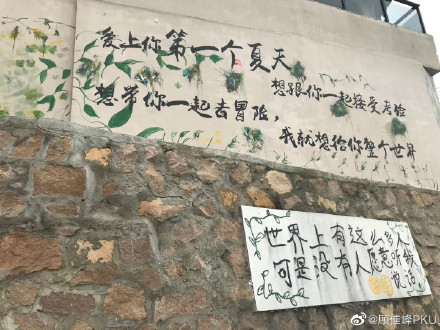 爱上你第一个夏天
想跟你一起接受考验
想带你一起去冒险，
我就想给你整个世界
世界上有这么多人
可是没有人愿意听我
说话
@顾佳峰PKU